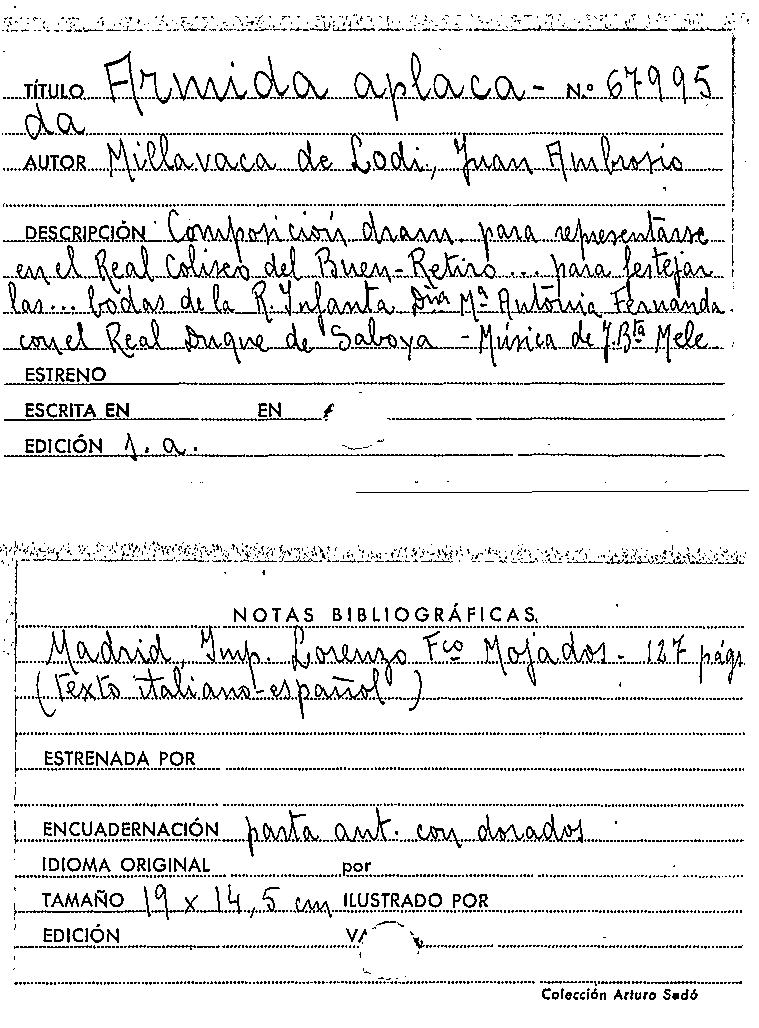 TÍTULO Armida aplaca- N.º 67995
da
AUTOR Millavaca de Lodi, Juan Ambrosio
DESCRIPCIÓN Composición dram. para representarse
en el Real Coliseo del Buen-Retiro... para festejar
las... bodas de la R. Infanta Dña Mª Antonia Fernanda
con el Real Duque de Saboya - Música de J. Bta Mele
ESTRENO
ESCRITA EN EN
EDICIÓN 1. a.
NOTAS BIBLIOGRÁFICAS
Madrid, Imp. Lorenzo Fco Mojados - 127 págs
(Texto italiano-español)
ESTRENADA POR
ENCUADERNACIÓN pasta ant. con dorados
IDIOMA ORIGINAL por
TAMAÑO 19 x 14,5 cm ILUSTRADO POR
EDICIÓN
Colección Arturo Sedó